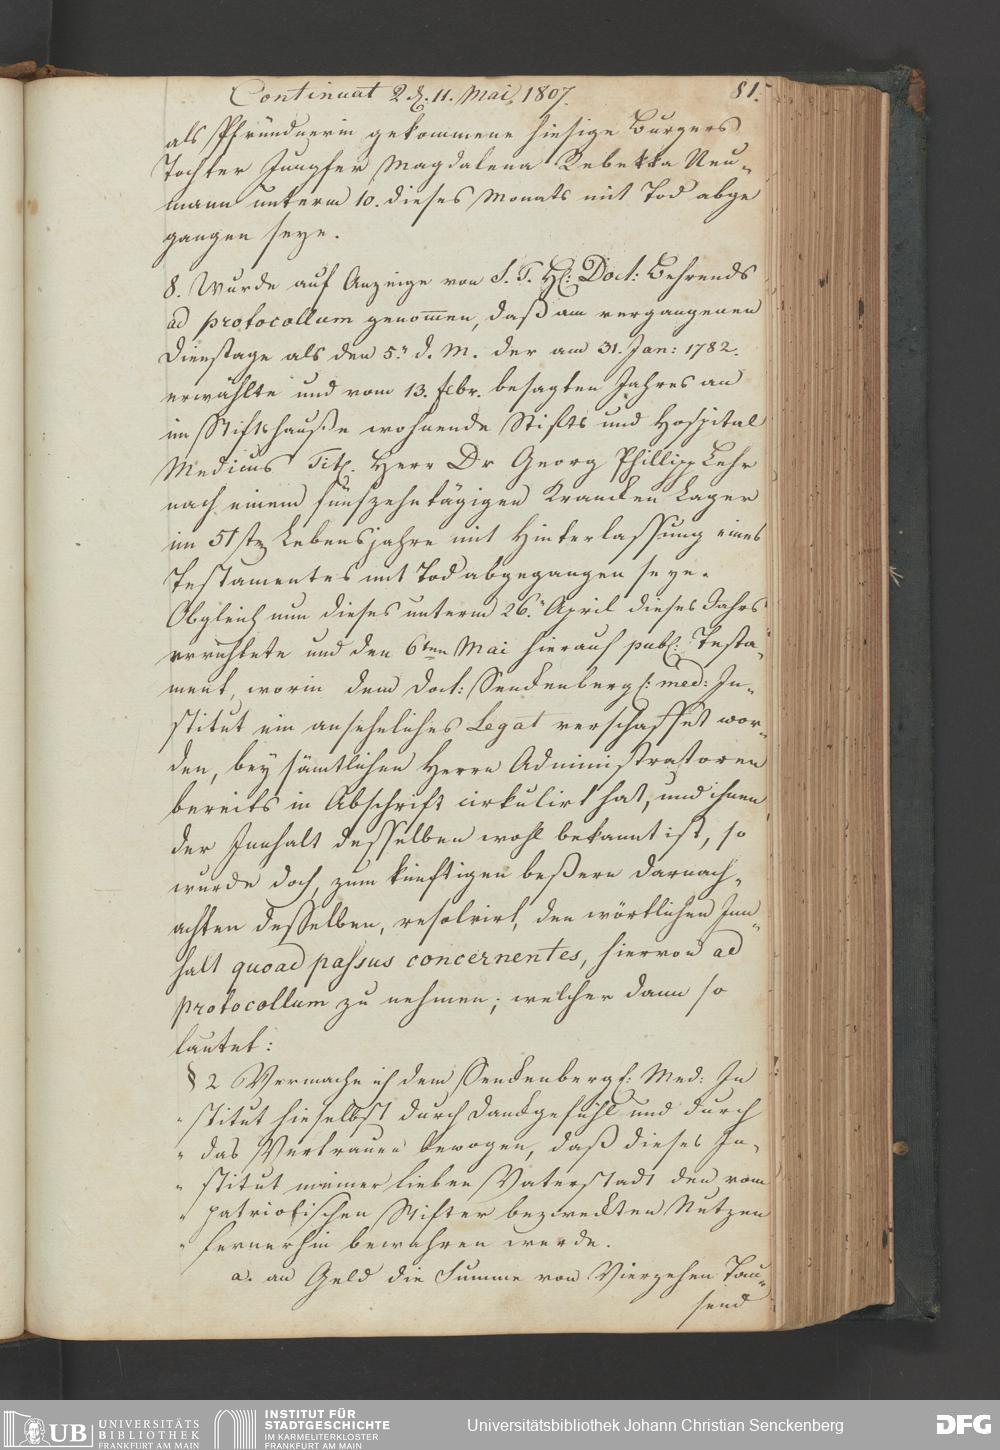 Continuat 2 d. 11. Mai, 1807.
81.
als Pfründnerin gekommene hiesige Burgers
Tochter Jungfer Magdalena Rebekka Neu-
mann unterm 10. dieses Monats mit Tod abge
gangen seye.
8. Wurde auf Anzeige von S. T. H: Doct: Behrends
ad protocollum genom̅en, daß am vergangenen
Dienstage als den 5. d. M. der am 31. Jan: 1782.
erwählte und vom 13. febr. besagten Jahres an
im Stiftshauße wohnende Stifts und Hospital
Medicus Tit. Herr Dr Georg Phillipp Lehr
nach einem fünfzehntägigen Krancken Lager
im 51 sten Lebensjahre mit Hinterlassung eines
Testamentes mit Tod abgegangen seye.
Obgleich nun dieses unterm 26. April dieses Jahrs
errichtete und den 6ten Mai hierauf publ: Testa-
ment, worin dem Doct: Senckenberg: med: In-
stitut ein ansehnliches Legat verschaffet wor-
den, bey sämtlichen Herrn Administratoren
bereits in Abschrift cirkulirt hat, und ihnen
der Innhalt desselben wohl bekannt ist, so
wurde doch, zum künftigen beßern darnach-
achten desselben, resolvirt, den wörtlichen Inn-
halt quoad passus concernentes, hiervon ad
protocollum zu nehmen; welcher dann so
lautet:
§ 2 Vermache ich dem Senckenberg: Med: In
" stitut hieselbst durch Danckgefühl und durch
" das Vertrauen bewogen, daß dieses In-
" stitut meiner lieben Vaterstadt den vom
" patriotischen Stifter bezweckten Nutzen
" fernerhin bewahren werde.
a. an Geld die Summe von Vierzehen Tau-
send
UB UNIVERSITÄTS
BIBLIOTHEK
FRANKFURT AM MAIN
INSTITUT FÜR
STADTGESCHICHTE
IM KARMELITERKLOSTER
FRANKFURT AM MAIN
Universitätsbibliothek Johann Christian Senckenberg
DFG